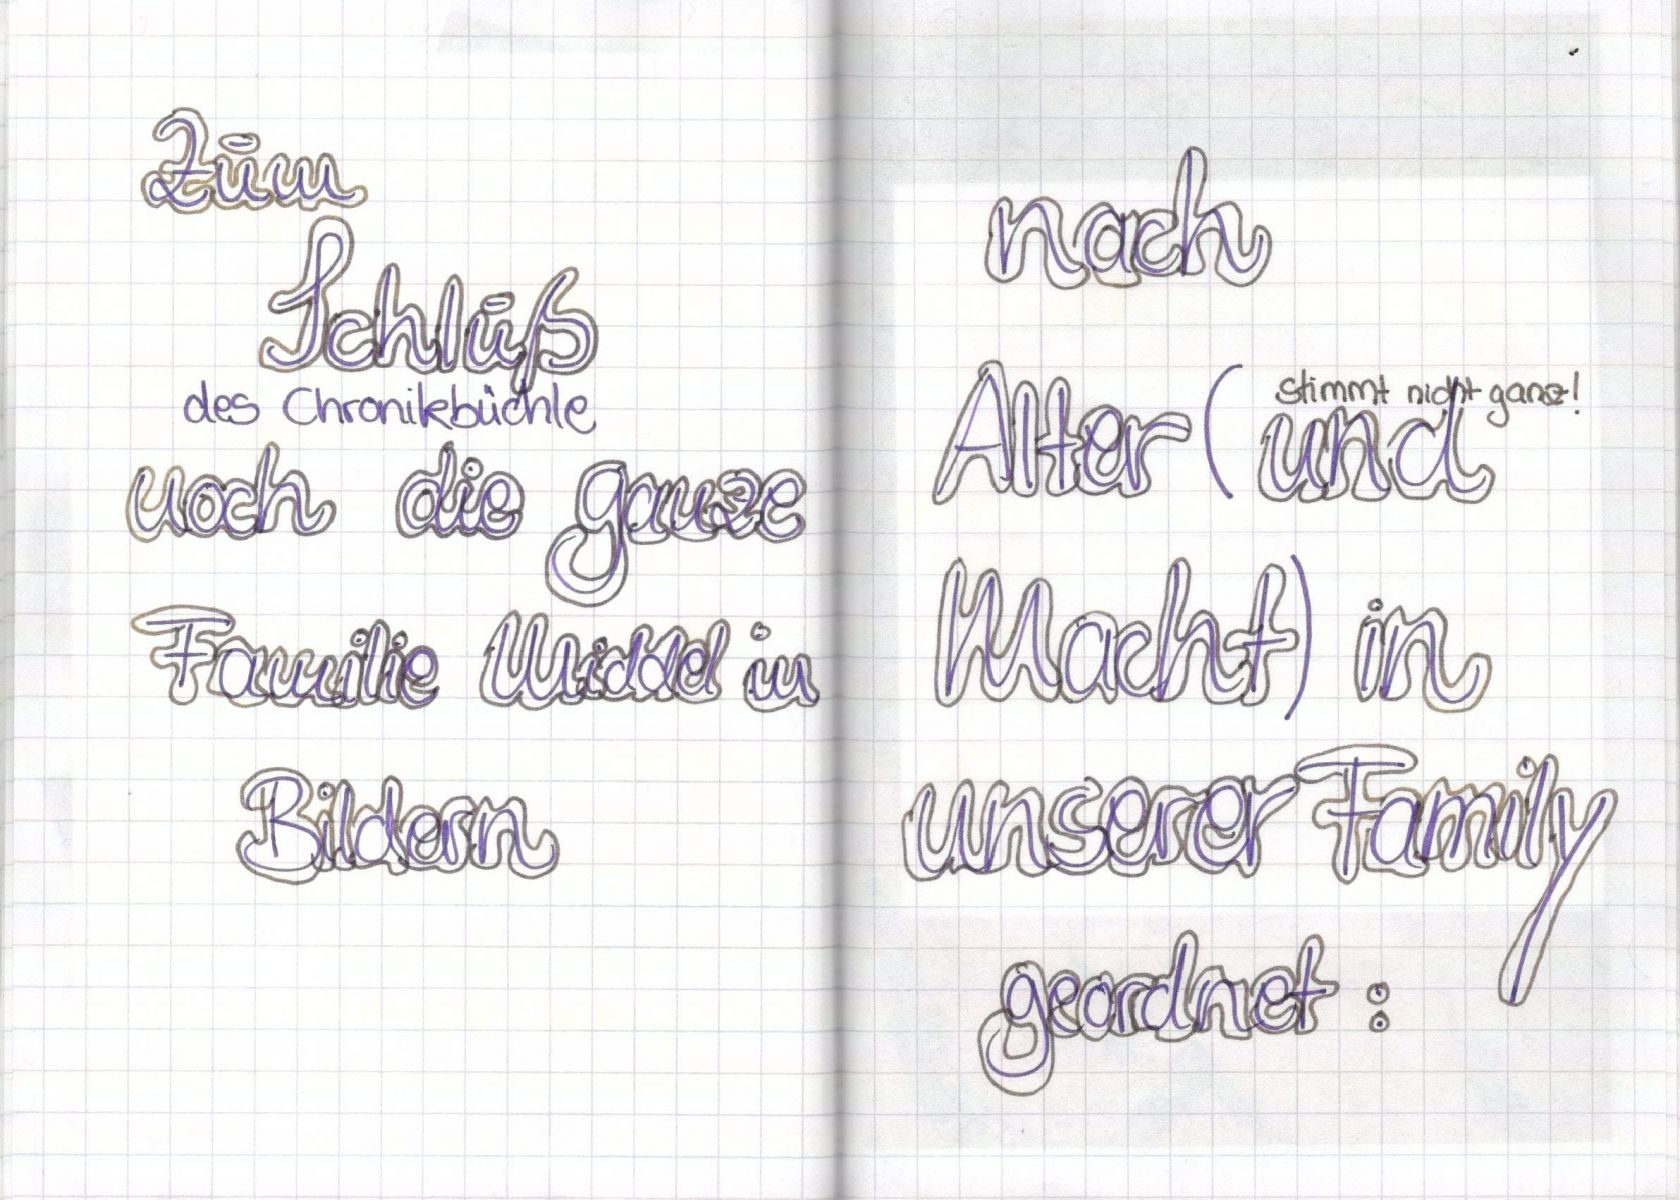 Zum
Schluß
des Chronikbüchle
noch die ganze
Familie Middel in
Bildern
nach
stimmt nicht ganz!
Alter (und
Macht) in
unserer Family
geordnet :